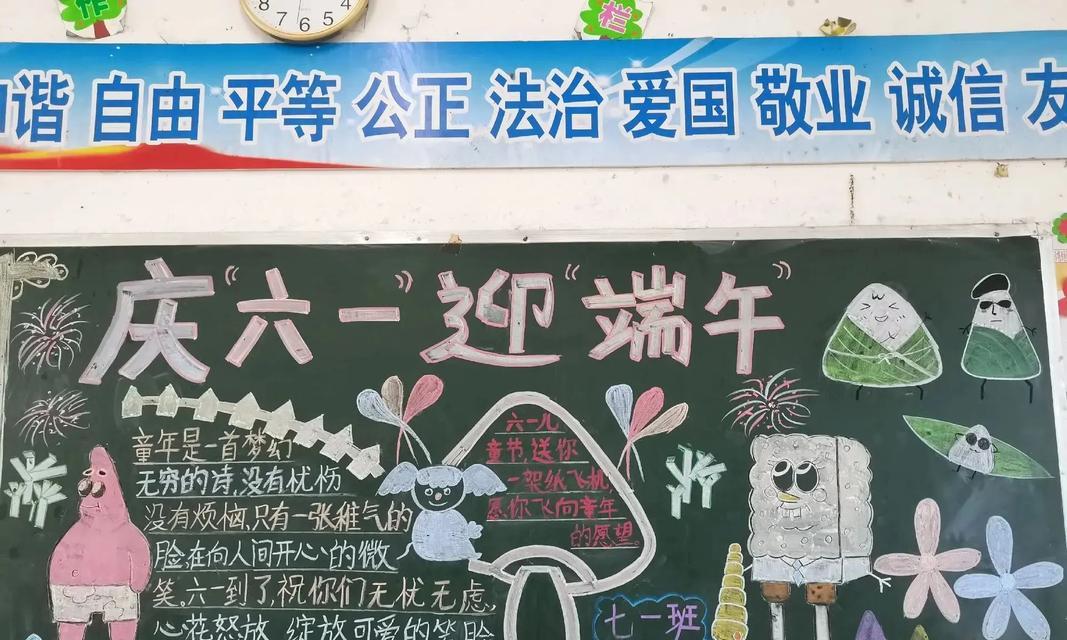 作
8 7 6 5 4
栏
和谐 自由 平等 公正 法治 爱国 敬业 诚信 友
庆“六一”迎“端午”
童年是一首梦幻
无穷的诗,没有忧伤
没有烦恼,只有一张稚气的
脸,在向人间开心的微
笑。六一到了,祝你们无忧无虑,
心花怒放,绽放可爱的笑脸
六一儿
童节,送你
一架纸飞机
愿你飞向童年
的愿望。
七一班